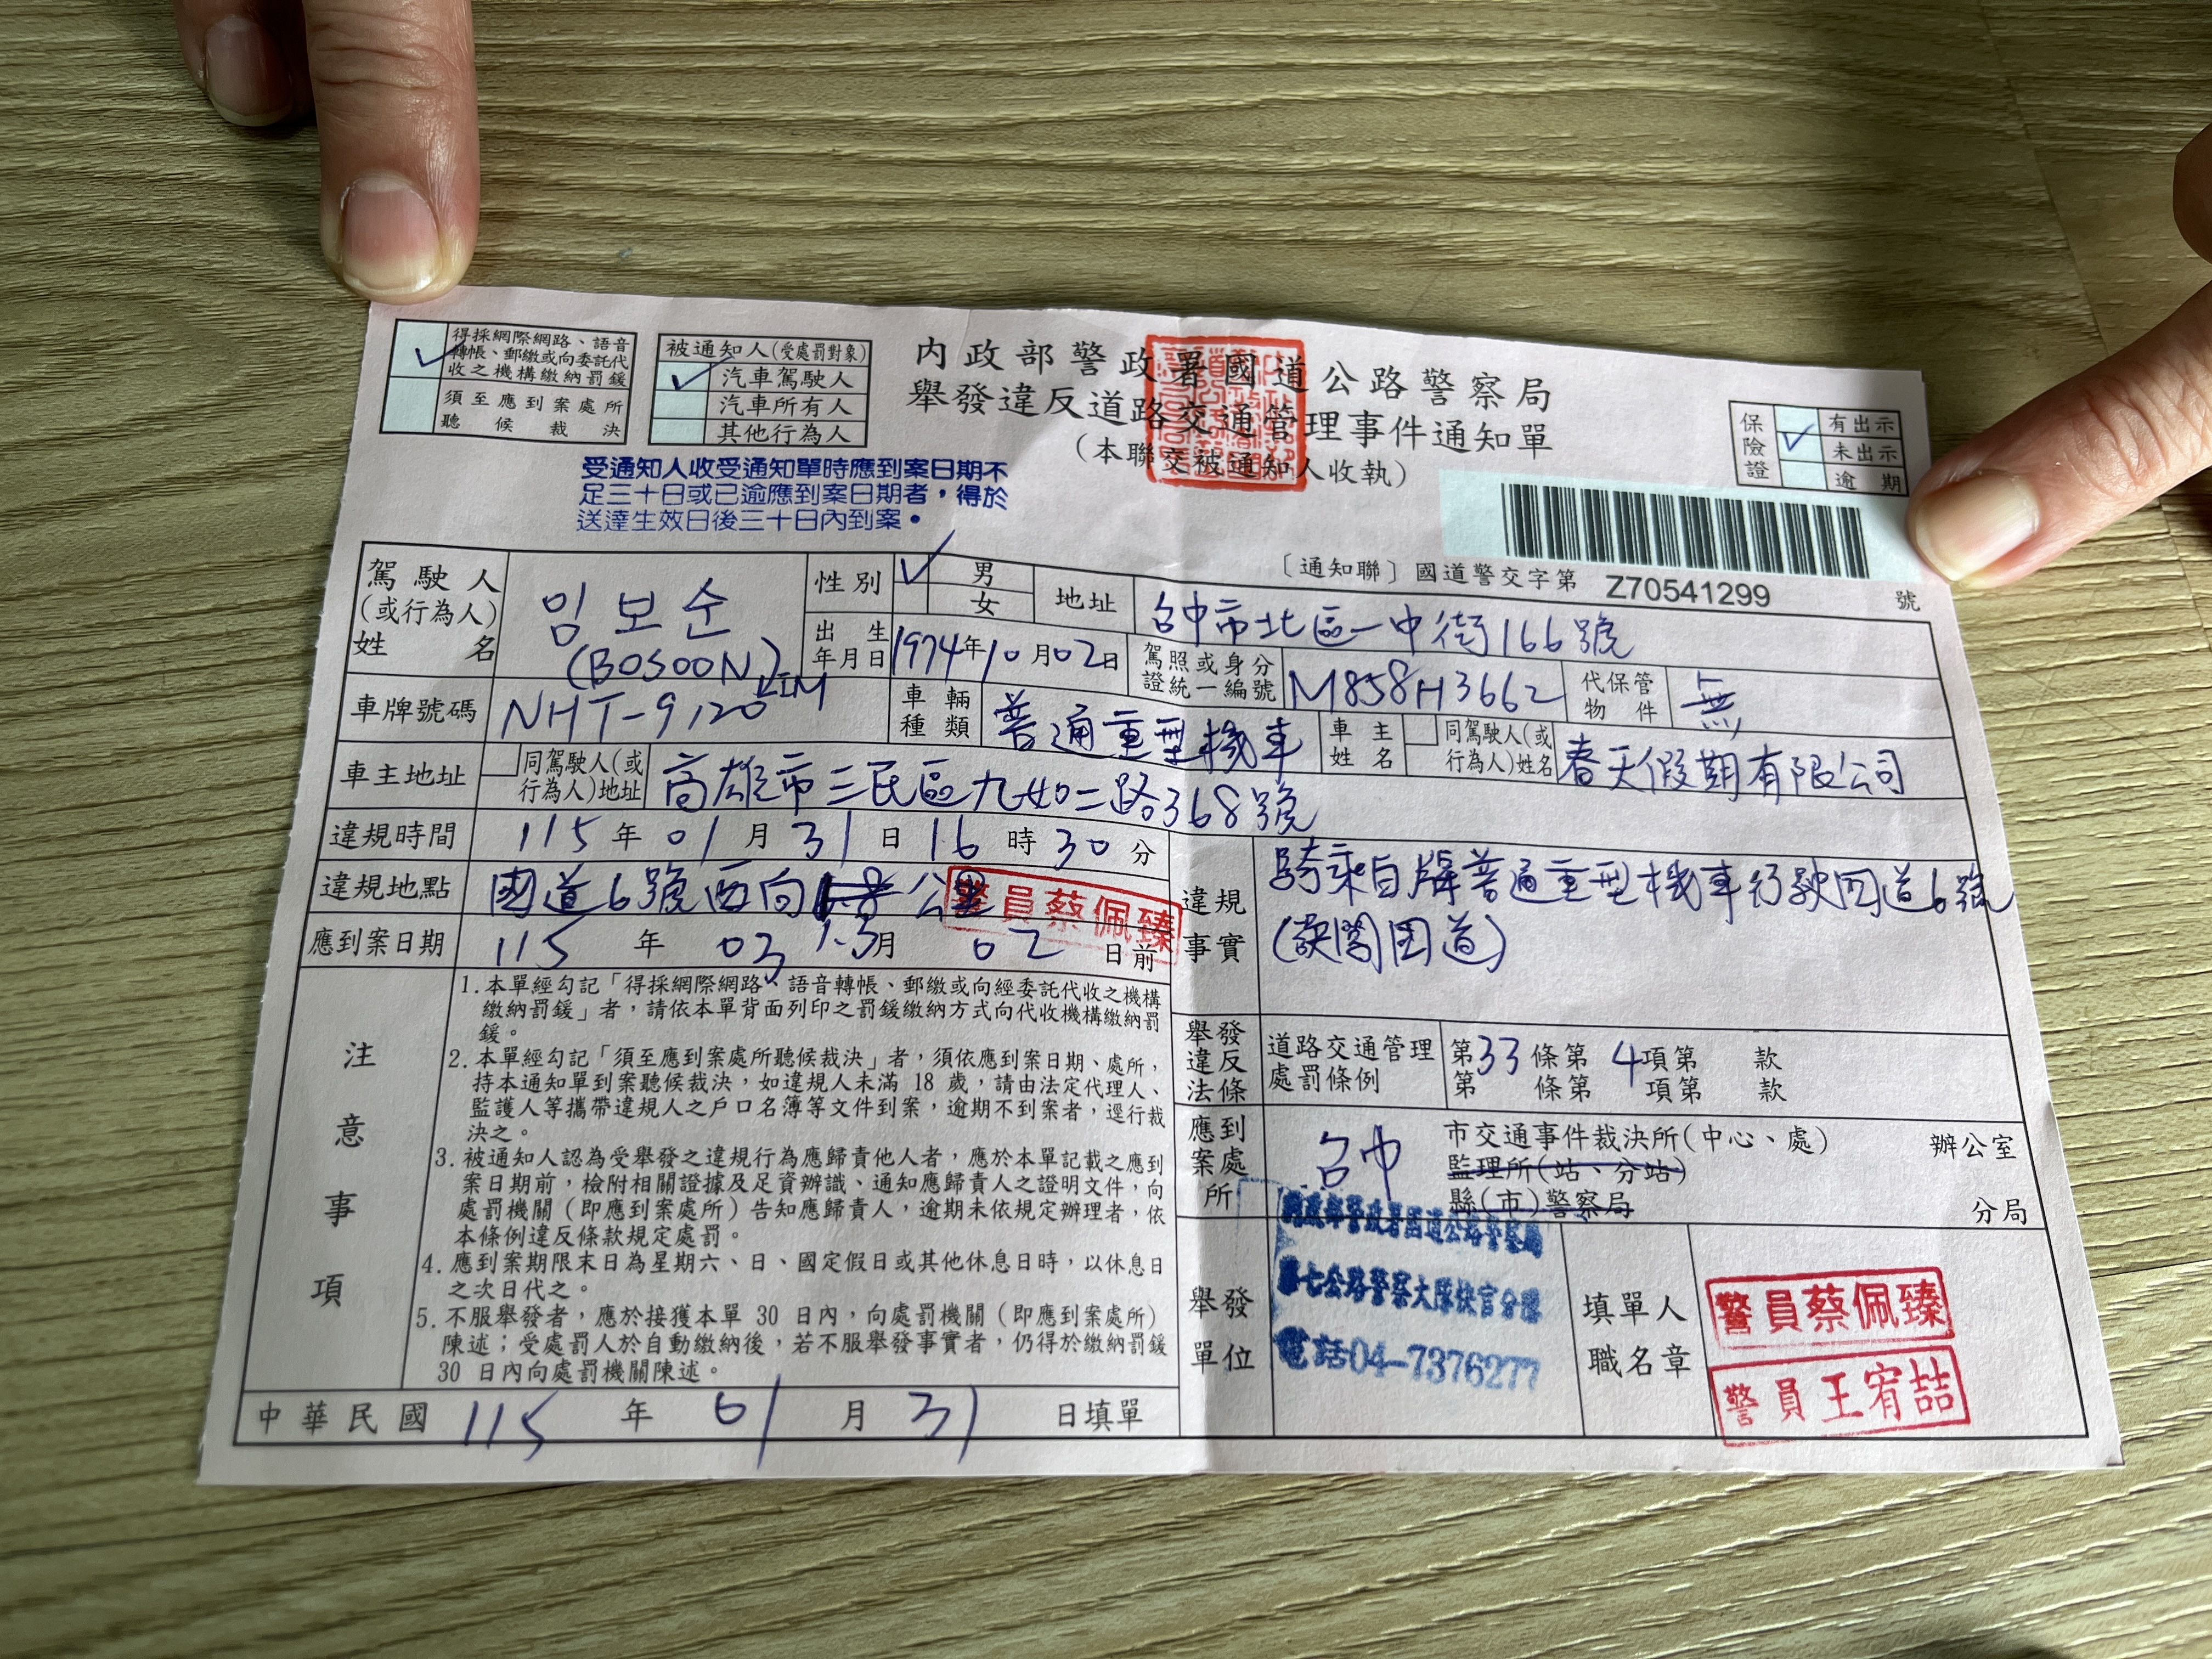 得採網際網路、語音
轉帳、郵繳或向委託代
收之機構繳納罰鍰
須至應到案處所
聽候裁決
被通知人(受處罰對象)
汽車駕駛人
汽車所有人
其他行為人
內政部警政署國道公路警察局
舉發違反道路交通管理事件通知單
(本聯交被通知人收執)
保險證
有出示
未出示
逾期
受通知人收受通知單時應到案日期不
足三十日或已逾應到案日期者，得於
送達生效日後三十日內到案。
〔通知聯〕國道警交字第 Z70541299 號
駕駛人
(或行為人)
姓名
임보순
(BOSOON)
LIM
性別
男
女
地址
台中市北區一中街166號
出生
年月日
1974年10月02日
駕照或身分
證統一編號
M858H3662
代保管
物件
無
車牌號碼
NHT-9120
車輛
種類
普通重型機車
車主
姓名
同駕駛人(或
行為人)姓名
春天假期有限公司
車主地址
同駕駛人(或
行為人)地址
高雄市三民區九如二路368號
違規時間
115年01月31日16時30分
違規地點
國道6號西向 公里
1.3
警員蔡佩臻
應到案日期
115年03月02日前
違規
事實
騎乘白牌普通重型機車行駛國道6號
(誤闖国道)
注意事項
1.本單經勾記「得採網際網路、語音轉帳、郵繳或向經委託代收之機構
繳納罰鍰」者，請依本單背面列印之罰鍰繳納方式向代收機構繳納罰
鍰。
2.本單經勾記「須至應到案處所聽候裁決」者，須依應到案日期、處所，
持本通知單到案聽候裁決，如違規人未滿 18 歲，請由法定代理人、
監護人等攜帶違規人之戶口名簿等文件到案，逾期不到案者，逕行裁
決之。
3.被通知人認為受舉發之違規行為應歸責他人者，應於本單記載之應到
案日期前，檢附相關證據及足資辨識、通知應歸責人之證明文件，向
處罰機關(即應到案處所)告知應歸責人，逾期未依規定辦理者，依
本條例違反條款規定處罰。
4.應到案期限末日為星期六、日、國定假日或其他休息日時，以休息日
之次日代之。
5.不服舉發者，應於接獲本單 30 日內，向處罰機關(即應到案處所)
陳述；受處罰人於自動繳納後，若不服舉發事實者，仍得於繳納罰鍰
30 日內向處罰機關陳述。
舉發
違反
法條
道路交通管理
處罰條例
第33條第4項第 款
第 條第 項第 款
應到
案處
所
台中
市交通事件裁決所(中心、處) 辦公室
監理所(站、分站)
縣(市)警察局 分局
舉發
單位
內政部警政署國道公路警察局
第七公路警察大隊快官分隊
電話04-7376277
填單人
職名章
警員蔡佩臻
警員王宥喆
中華民國115年01月31日填單